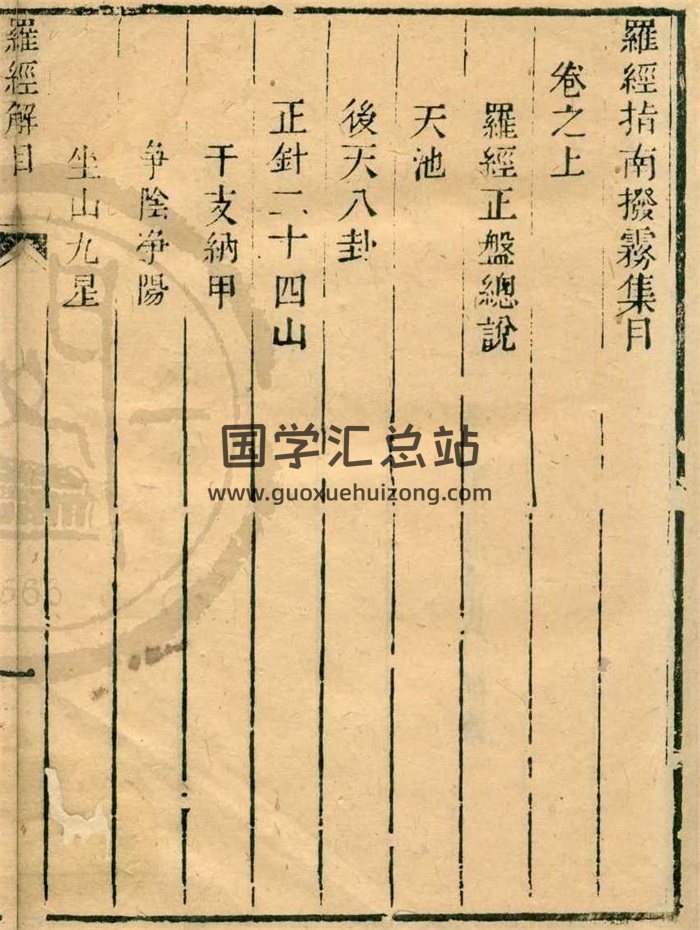 羅經指南撥霧集目
卷之上
羅經正盤總說
天池
後天八卦
正針二十四山
干支納甲
爭陰爭陽
坐山九星
羅經解目
一
国学汇总站
www.guoxuehuizong.com